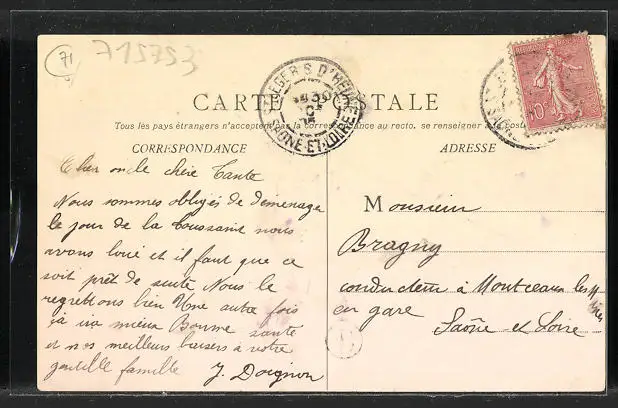 71
715753
CARTE POSTALE
Tous les pays étrangers n'acceptent pas la correspondance au recto. se renseigner à la poste
CORRESPONDANCE
ADRESSE
Cher oncle chère Tante
Nous sommes obligés de déménager
le jour de la Toussaint nous
avons loué et il faut que ce
soit prêt de suite Nous le
regrettons bien Une autre fois
ça ira mieux Bonne santé
et nos meilleurs baisers à votre
gentille famille
J. Doignon
Monsieur
Bragny
conducteur à Montceau les Mines
en gare
Saône et Loire
D'HEUNE
SAONE-ET-LOIRE
10